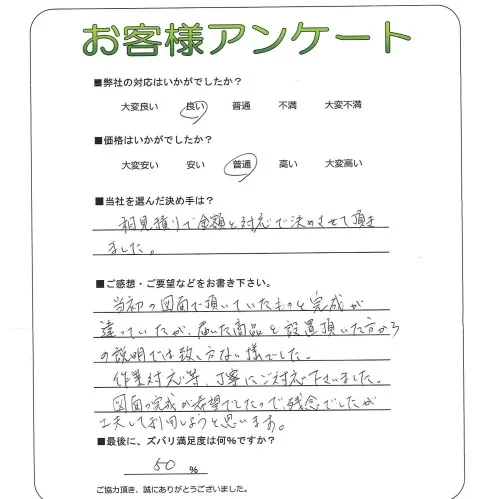 お客様アンケート
■弊社の対応はいかがでしたか？
大変良い 良い 普通 不満 大変不満
■価格はいかがでしたか？
大変安い 安い 普通 高い 大変高い
■当社を選んだ決め手は？
相見積りで金額と対応で決めさせて頂き
ました。
■ご感想・ご要望などをお書き下さい。
当初の図面で頂いていたものと完成が
違っていたが、届いた商品を設置頂いた方から
の説明では致し方ない様でした。
作業対応等、丁寧にご対応下さいました。
図面の完成が希望でしたので、残念でしたが
工夫して利用しようと思います。
■最後に、ズバリ満足度は何％ですか？
50 %
ご協力頂き、誠にありがとうございました。